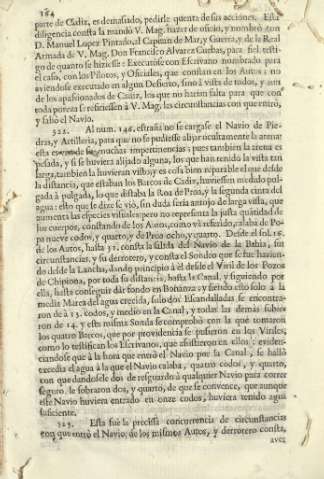 164
parte de Cadiz, es demasiado, pedirle quenta de sus acciones. Esta
diligencia consta la mandò V. Mag. hazer de oficio, y nombrò con
D. Manuel Lopez Pintado, al Capitan de Mar, y Guerra, y de la Real
Armada de V. Mag. Don Francisco Alvarez Cuebas, para fiel testi-
go de quanto se hiziesse: Executòse con Escrivano nombrado para
el caso, con los Pilotos, y Oficiales, que constan en los Autos: no
aviendose executado en algun desierto, sino à vista de todos, y aun
de los apasionados de Cadiz, los que no harian falta para que con
toda pureza se refiriessen à V. Mag. las circunstancias con que entrò,
y saliò el Navio.
322. Al num. 146. estraña no se cargasse el Navio de Pie-
dras, y Artilleria, para que no se pudiesse alijar ocultamente la arma:
esta es de impertinencias; pues tambien la arena es
pesada, y si se huviera alijado alguna, los que han tenido la vista tan
larga, tambien la huvieran visto; y es cosa bien reparable el que desde
la distancia, que estaban los Barcos de Cadiz, huviessen medido pul-
gada à pulgada, lo que distaba la Roa de Proa, y la segunda cinta del
agua: esto que le dize se viò, sin duda seria antojo de larga vista, que
aumenta las especies visuales: pero no representa la justa quantidad de
los cuerpos, constando de los Autos, como và referido, calaba de Po-
pa nueve codos, y quarto, y de Proa ocho, y quarto. Desde el fol. 16.
de los Autos, hasta 32. consta la salida del Navio de la Bahia, sus
circunstancias, y su derrotero, y consta el Sondèo que se fue hazien-
do desde la Lancha, dando principio à èl desde el Viril de los Pozos
de Chipiona, por toda su distancia, hasta la Canal, y siguiendo por
ella, hasta conseguir dàr fondo en Bonanza; y siendo esto solo à la
media Marea del agua crecida, solo dos Escandalladas se encontra-
ron de à 13. codos, y medio en la Canal, y todas las demàs subie-
ron de 14. y esta misma Sonda se comprobò con la que tomaron
los quatro Barcos, que por providencia se pusieron en los Viriles,
como lo testifican los Escrivanos, que assistieron en ellos: eviden-
ciandose que à la hora que entrò el Navio por la Canal, se hallò
excedia el agua à la que el Navio calaba, quatro codos, y quarto,
con que dandosele dos de resguardo à qualquier Navio para correr
seguro, le sobraron dos, y quarto, de que se convence, que aunque
este Navio huviera entrado en onze codos, huviera tenido agua
suficiente.
323. Esta fue la precissa concurrencia de circunstancias
con que entrò el Navio, de los mismos Autos, y derrotero consta,
aver